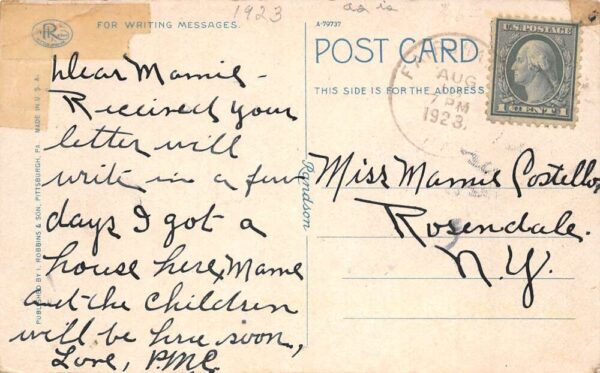 FOR WRITING MESSAGES.
1923
as is
A-79737
POST CARD
THIS SIDE IS FOR THE ADDRESS
U.S. POSTAGE
1 CENT 1
AUG
7 PM
1923.
PUBLISHED BY I. ROBBINS & SON, PITTSBURGH, PA. MADE IN U.S.A.
Dear Mamie -
Received your
letter will
write in a few
days I got a
house here, Mame
and the children
will be here soon,
Love, P.M.C.
Miss Mamie Costello,
Rosendale.
N.Y.